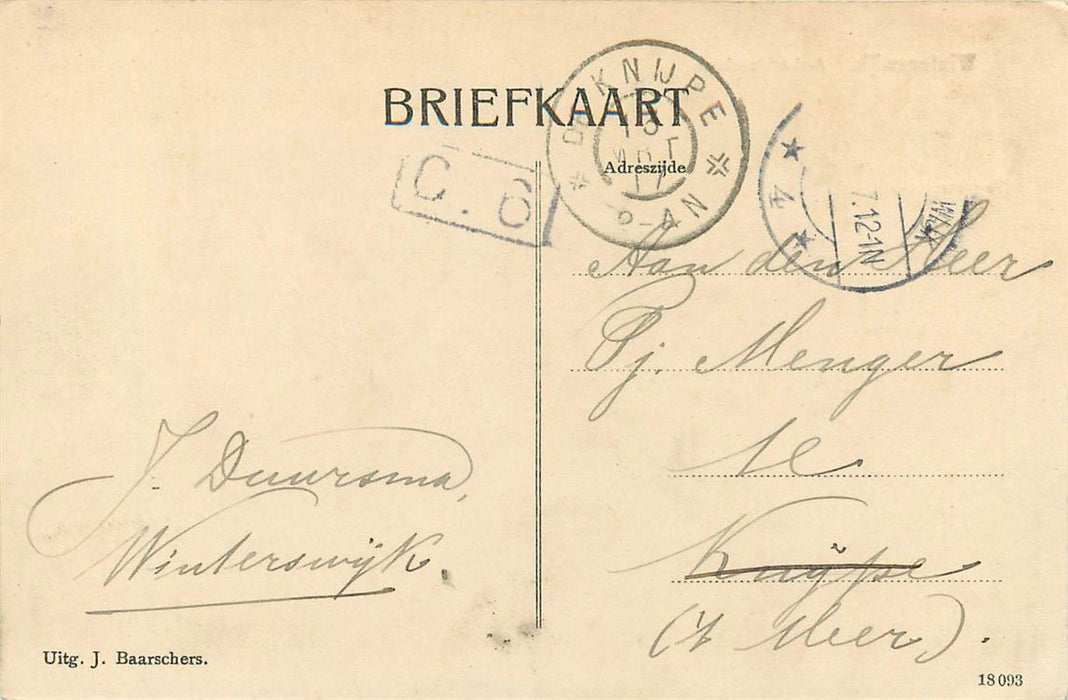 BRIEFKAART
Adreszijde
DE KNIJPE
8-9 VN
C. 8
4
7.12-1N
WIJK
Aan den Heer
Pj. Menger
te
Knijpe
('t Meer).
J. Duursma,
Winterswijk.
Uitg. J. Baarschers.
18093